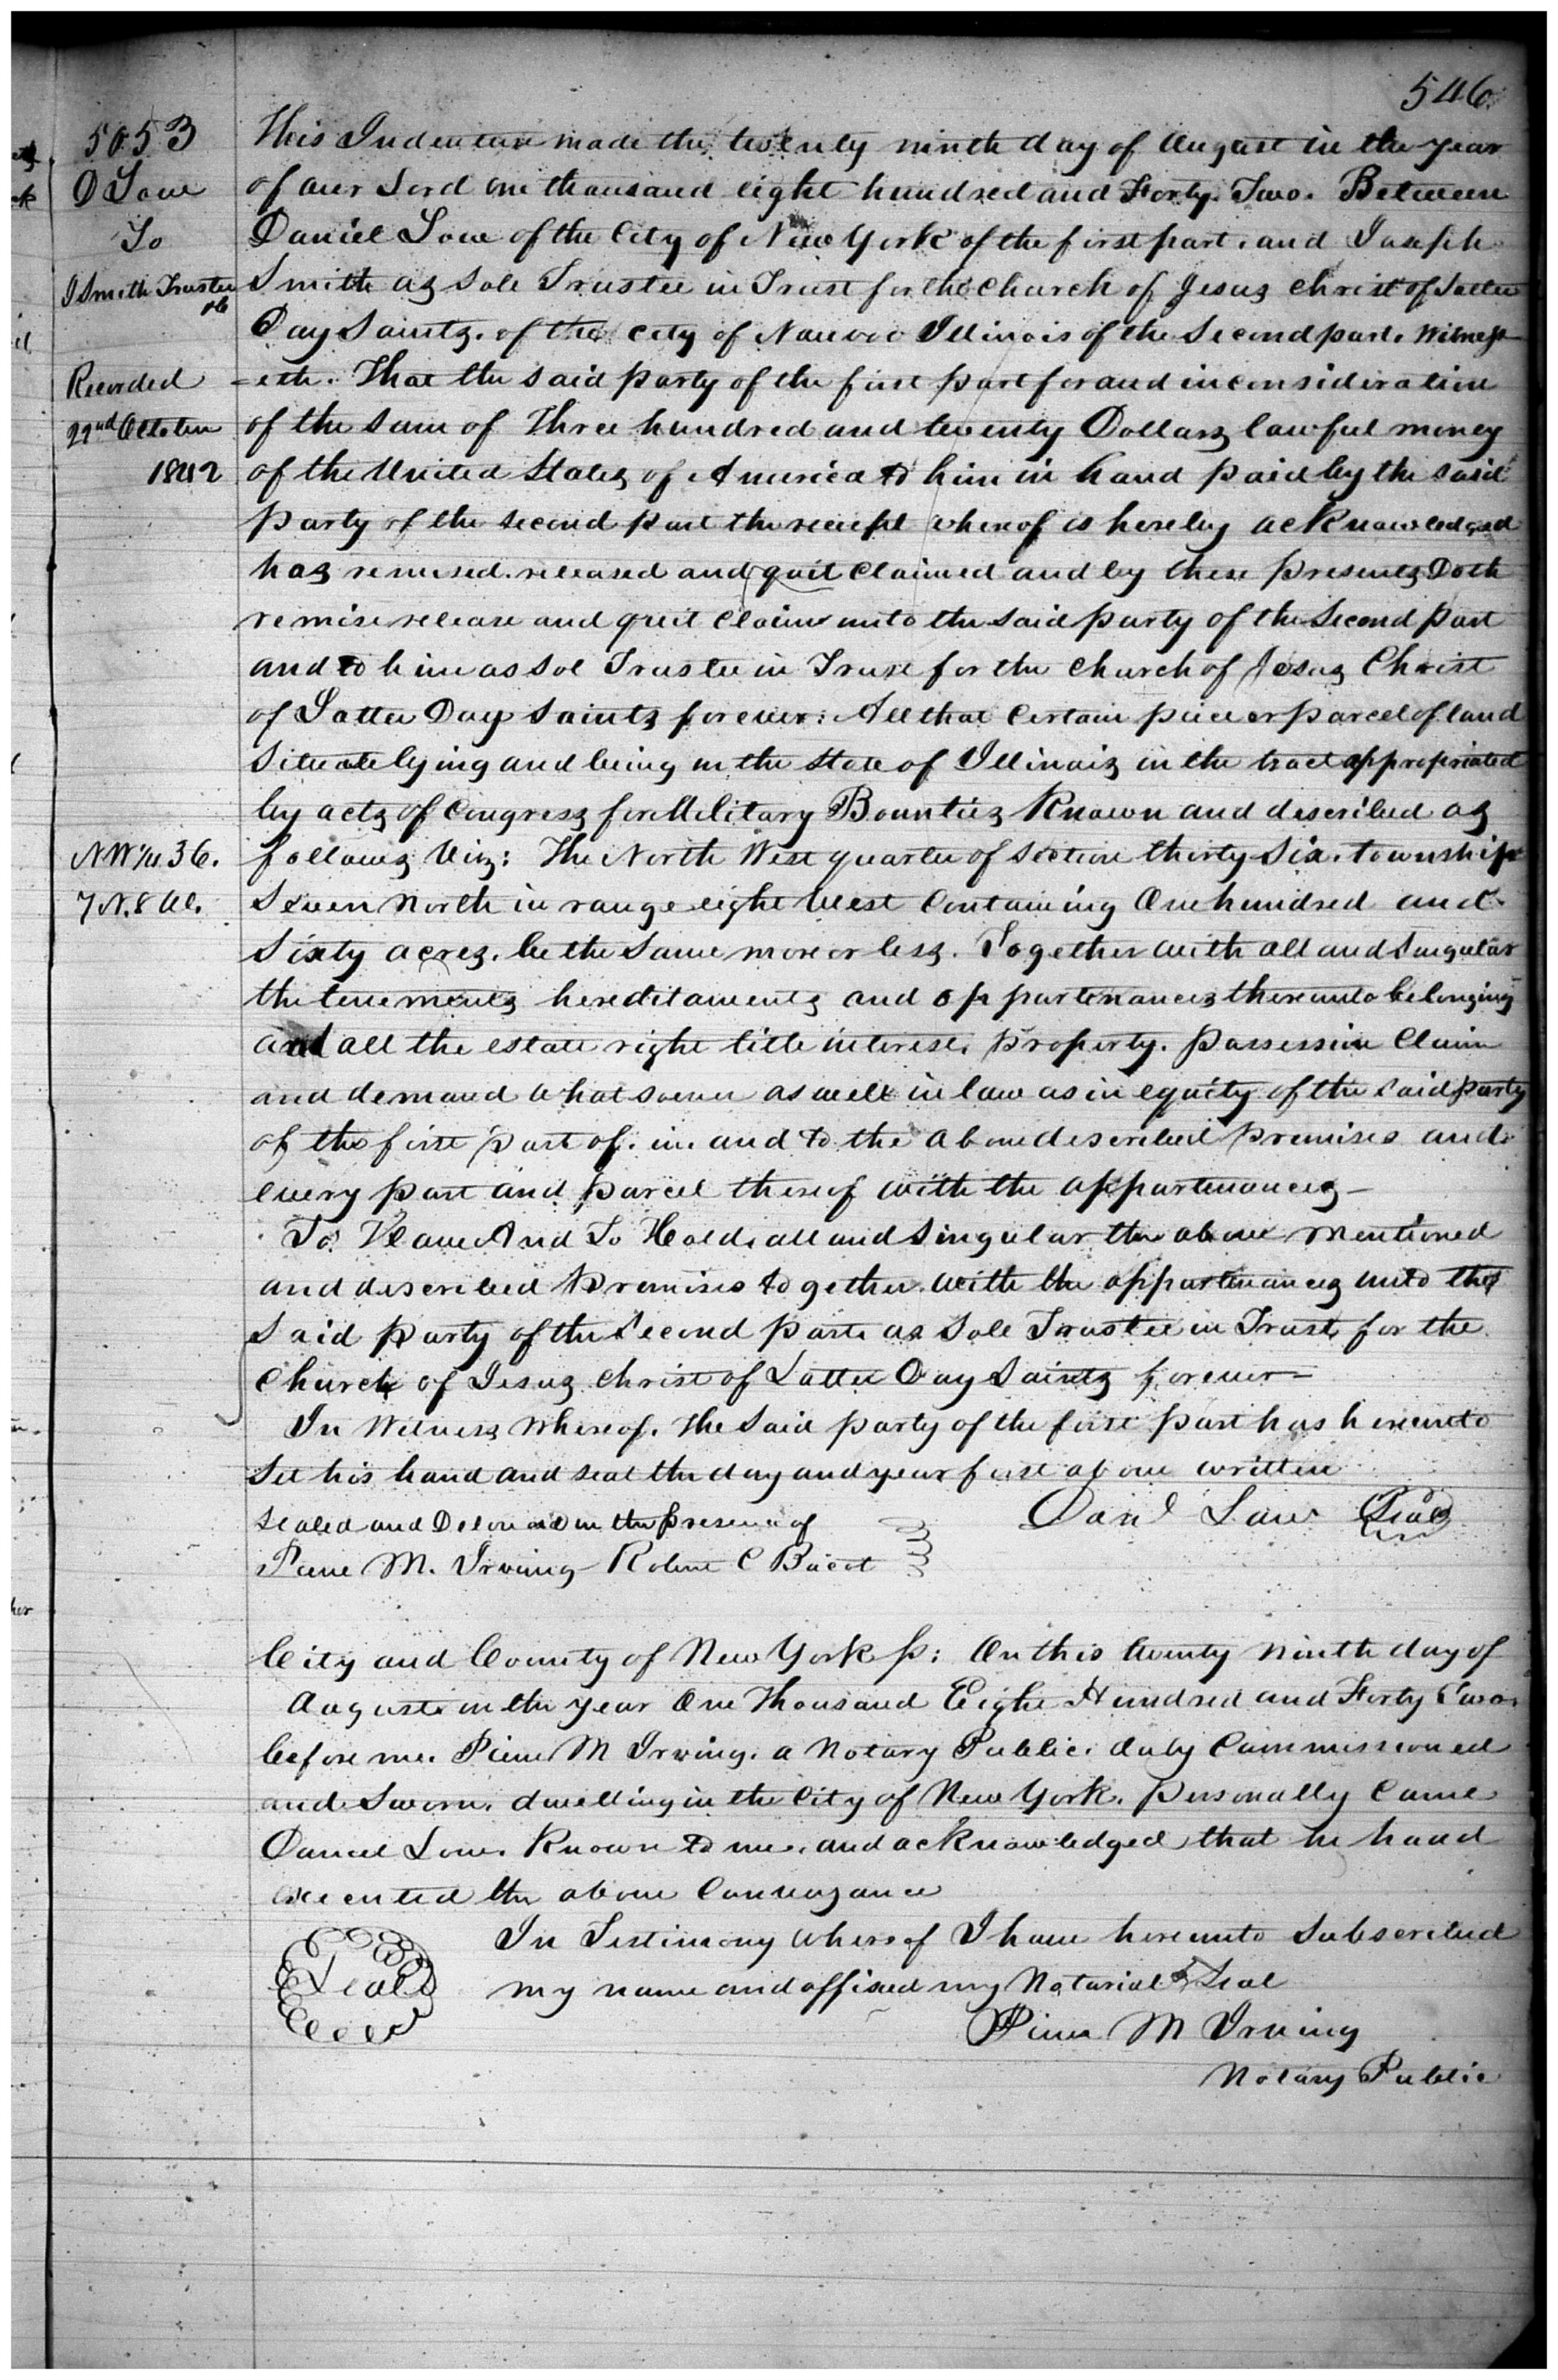 546
5053
D Low
To
J Smith Trustee
&c
Recorded
22nd October
1842
This Indenture made the twenty ninth day of August in the year
of our Lord one thousand eight hundred and Forty Two. Between
Daniel Low of the City of New York of the first part. and Joseph
Smith as Sole Trustee in Trust for the Church of Jesus Christ of Latter
Day Saints. of the City of Nauvoo Illinois of the Second part. Witness
=eth. That the said party of the first part for and in consideration
of the sum of Three hundred and twenty Dollars lawful money
of the United States of America to him in hand paid by the said
party of the second part the receipt whereof is hereby acknowledged
has remised. released and quit claimed and by these presents Doth
remise release and quit claim unto the said party of the Second part
and to him as sol Trustee in Trust for the Church of Jesus Christ
of Latter Day Saints forever: All that certain piece or parcel of land
situate lying and being in the State of Illinois in the tract appropriated
by acts of Congress for Military Bounties Known and described as
NW 1/4 36.
7 N. 8 W.
follows Viz: The North West quarter of section thirty Six. township
Seven North in range eight West Containing One hundred and
Sixty acres. be the same more or less. Together with all and Singular
the tenements hereditaments and appurtenances thereunto belonging
and all the estate right title interest. property. possession Claim
and demand whatsoever as well in law as in equity of the said party
of the first part of. in. and to the above described premises and
every part and parcel thereof with the appurtenances—
To Have And To Hold. all and Singular the above mentioned
and described premises together with the appurtenances unto the
Said party of the Second part. as Sole Trustee in Trust for the
Church of Jesus Christ of Latter Day Saints forever=
In Witness Whereof. the Said party of the first part has hereunto
Set his hand and seal the day and year first above written
Sealed and Delivered in the presence of
Danl Low Seal
Pierre M. Irving Robert C Bacot
City and County of New York ss: On this twenty ninth day of
August in the year One Thousand Eight Hundred and Forty Two
before me. Pierre M Irving. a Notary Public. duly Commissioned
and Sworn. dwelling in the City of New York. personally Came
Daniel Low. Known to me. and acknowledged that he haad
executed the above Conveyance
Seal
In Testimony whereof I have hereunto Subscribed
my name and affixed my Notarial Seal
Pierre M Irving
Notary Public